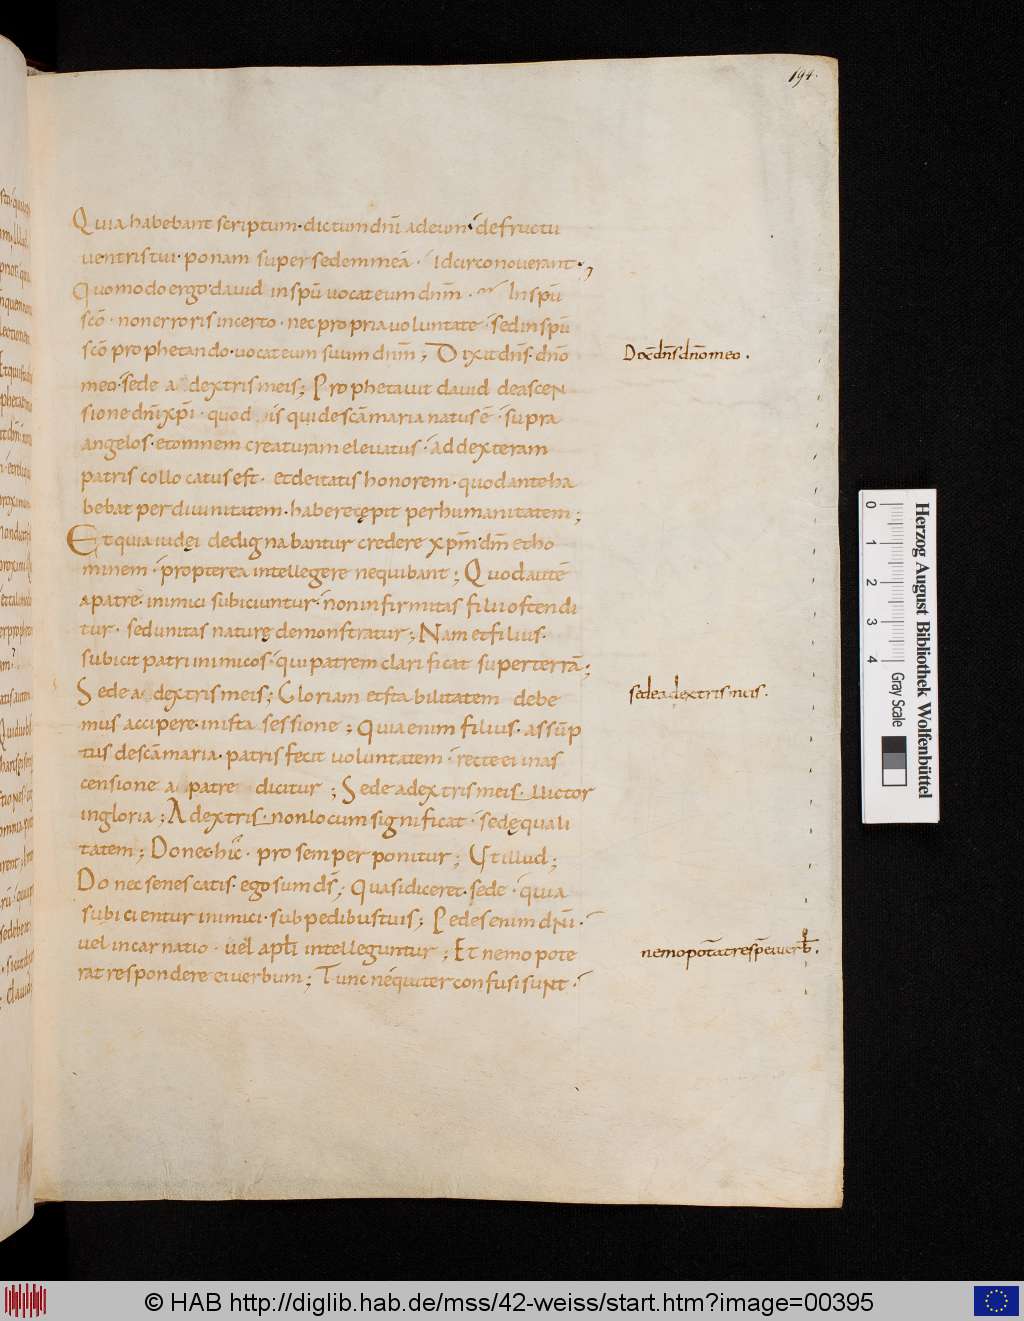 194.
Quia habebant scriptum · dictum dn̄i ad eum · de fructu
uentris tui · ponam super sedem meā · idcirco nouerant ·
Quomodo ergo dauid in spū uocat eum dn̄m · In spū
scō · non erroris incerto · nec propria uoluntate · sed in spū
scō prophetando · uocat eum suum dn̄m ; Dixit dn̄s · dn̄o
meo · sede a dextris meis ; Prophetauit dauid de ascen
sione dn̄i xp̄i · quod is qui de scā maria natus ē · supra
angelos · et omnem creaturam eleuatus · ad dexteram
patris collocatus est · et deitatis honorem · quod ante ha
bebat per diuinitatem · habere cępit per humanitatem ;
Et quia iudęi dedignabantur credere xp̄m · dm̄ et ho
minem · propterea intellegere nequibant ; Quod autē
a patre · inimici subiciuntur · non infirmitas filii ostendi
tur · sed unitas naturę demonstratur ; Nam et filius ·
subicit patri inimicos · qui patrem clarificat super terrā ;
Sede a dextris meis ; Gloriam et stabilitatem debe
mus accipere · in ista sessione ; Quia enim filius · assūp
tus de scā maria · patris fecit uoluntatem · recte ei in as
censione a patre dicitur ; Sede a dextris meis · uictor
in gloria ; A dextris · non locum significat · sed ęquali
tatem ; Donec hic · pro semper ponitur ; Ut illud ;
Donec senescatis · ego sum ds̄ ; Quasi diceret · sede · quia
subicientur inimici · sub pedibus tuis ; Pedes enim dn̄i ·
uel incarnatio · uel apłi intelleguntur ; Et nemo pote
rat respondere ei uerbum ; Tunc nequiter confusi sunt ·
Dix̄ dn̄s dn̄o meo .
sede a dextris meis .
nemo potāt respōe ei uerb̄ .
Herzog August Bibliothek Wolfenbüttel
0 1 2 3 4 Gray Scale
© HAB http://diglib.hab.de/mss/42-weiss/start.htm?image=00395